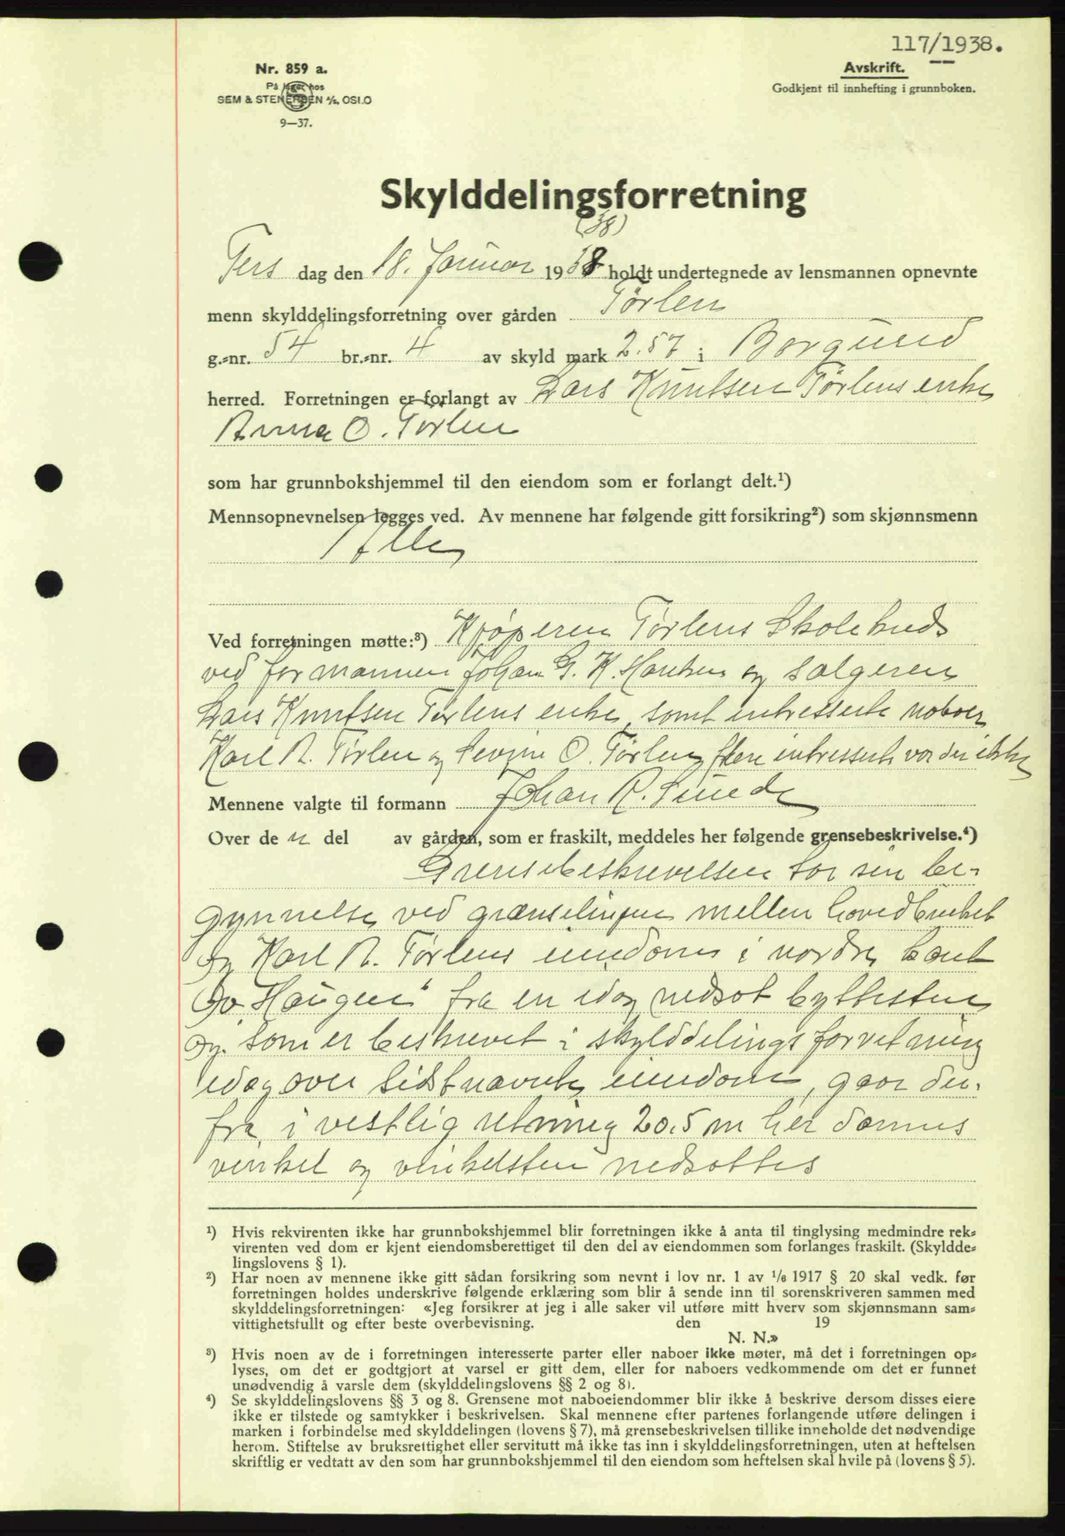 117/1938.
Nr. 859 a.
På lager hos
SEM & STENERSEN A/S, OSLO
9—37.
Avskrift.
Godkjent til innhefting i grunnboken.
Skylddelingsforretning
(38)
Ters dag den 18. Januar 1938 holdt undertegnede av lensmannen opnevnte
menn skylddelingsforretning over gården Tørlen
g.-nr. 54 br.-nr. 4 av skyld mark 2.57 i Borgund
herred. Forretningen er forlangt av Lars Knutsen Tørlens enke
Anna O. Tørlen
som har grunnbokshjemmel til den eiendom som er forlangt delt.¹)
Mennsopnevnelsen legges ved. Av mennene har følgende gitt forsikring²) som skjønnsmenn
Alle
Ved forretningen møtte:³) Kjøperen Tørlens Skolekreds
ved formannen Johan G. K. og sælgeren
Lars Knutsen Tørlens enke, samt intresserte naboer
Karl A. Tørlen og Sevrine O. Tørlen, flere intresserte var der ikke
Mennene valgte til formann Johan R. Sunde
Over de n del av gården, som er fraskilt, meddeles her følgende grensebeskrivelse.⁴)
Grensebeskrivelsen har sin be-
gynnelse ved grænselinjen mellem hovedbruket
og Karl A. Tørlens eiendom i nordre kant
av "Haugen" fra en idag nedsat byttesten
og som er beskrevet i skylddelingsforretning
idag over sidstnævnte eiendom, gaar der-
fra i vestlig retning 20.5 m her dannes
vinkel og vinkelsten nedsattes
¹) Hvis rekvirenten ikke har grunnbokshjemmel blir forretningen ikke å anta til tinglysing medmindre rek-
virenten ved dom er kjent eiendomsberettiget til den del av eiendommen som forlanges fraskilt. (Skyldde-
lingslovens § 1).
²) Har noen av mennene ikke gitt sådan forsikring som nevnt i lov nr. 1 av 1/6 1917 § 20 skal vedk. før
forretningen holdes underskrive følgende erklæring som blir å sende inn til sorenskriveren sammen med
skylddelingsforretningen: «Jeg forsikrer at jeg i alle saker vil utføre mitt hverv som skjønnsmann sam-
vittighetsfullt og efter beste overbevisning. den 19
N. N.»
³) Hvis noen av de i forretningen interesserte parter eller naboer ikke møter, må det i forretningen op-
lyses, om det er godtgjort at varsel er gitt dem, eller for naboers vedkommende om det er funnet
unødvendig å varsle dem (skylddelingslovens §§ 2 og 8).
⁴) Se skylddelingslovens §§ 3 og 8. Grensene mot naboeiendommer blir ikke å beskrive dersom disses eiere
ikke er tilstede og samtykker i beskrivelsen. Skal mennene efter partenes forlangende utføre delingen i
marken i forbindelse med skylddelingen (lovens § 7), må grensebeskrivelsen tillike inneholde det nødvendige
herom. Stiftelse av bruksrettighet eller servitutt må ikke tas inn i skylddelingsforretningen, uten at heftelsen
skriftlig er vedtatt av den som har grunnbokshjemmel til den eiendom som heftelsen skal hvile på (lovens § 5).